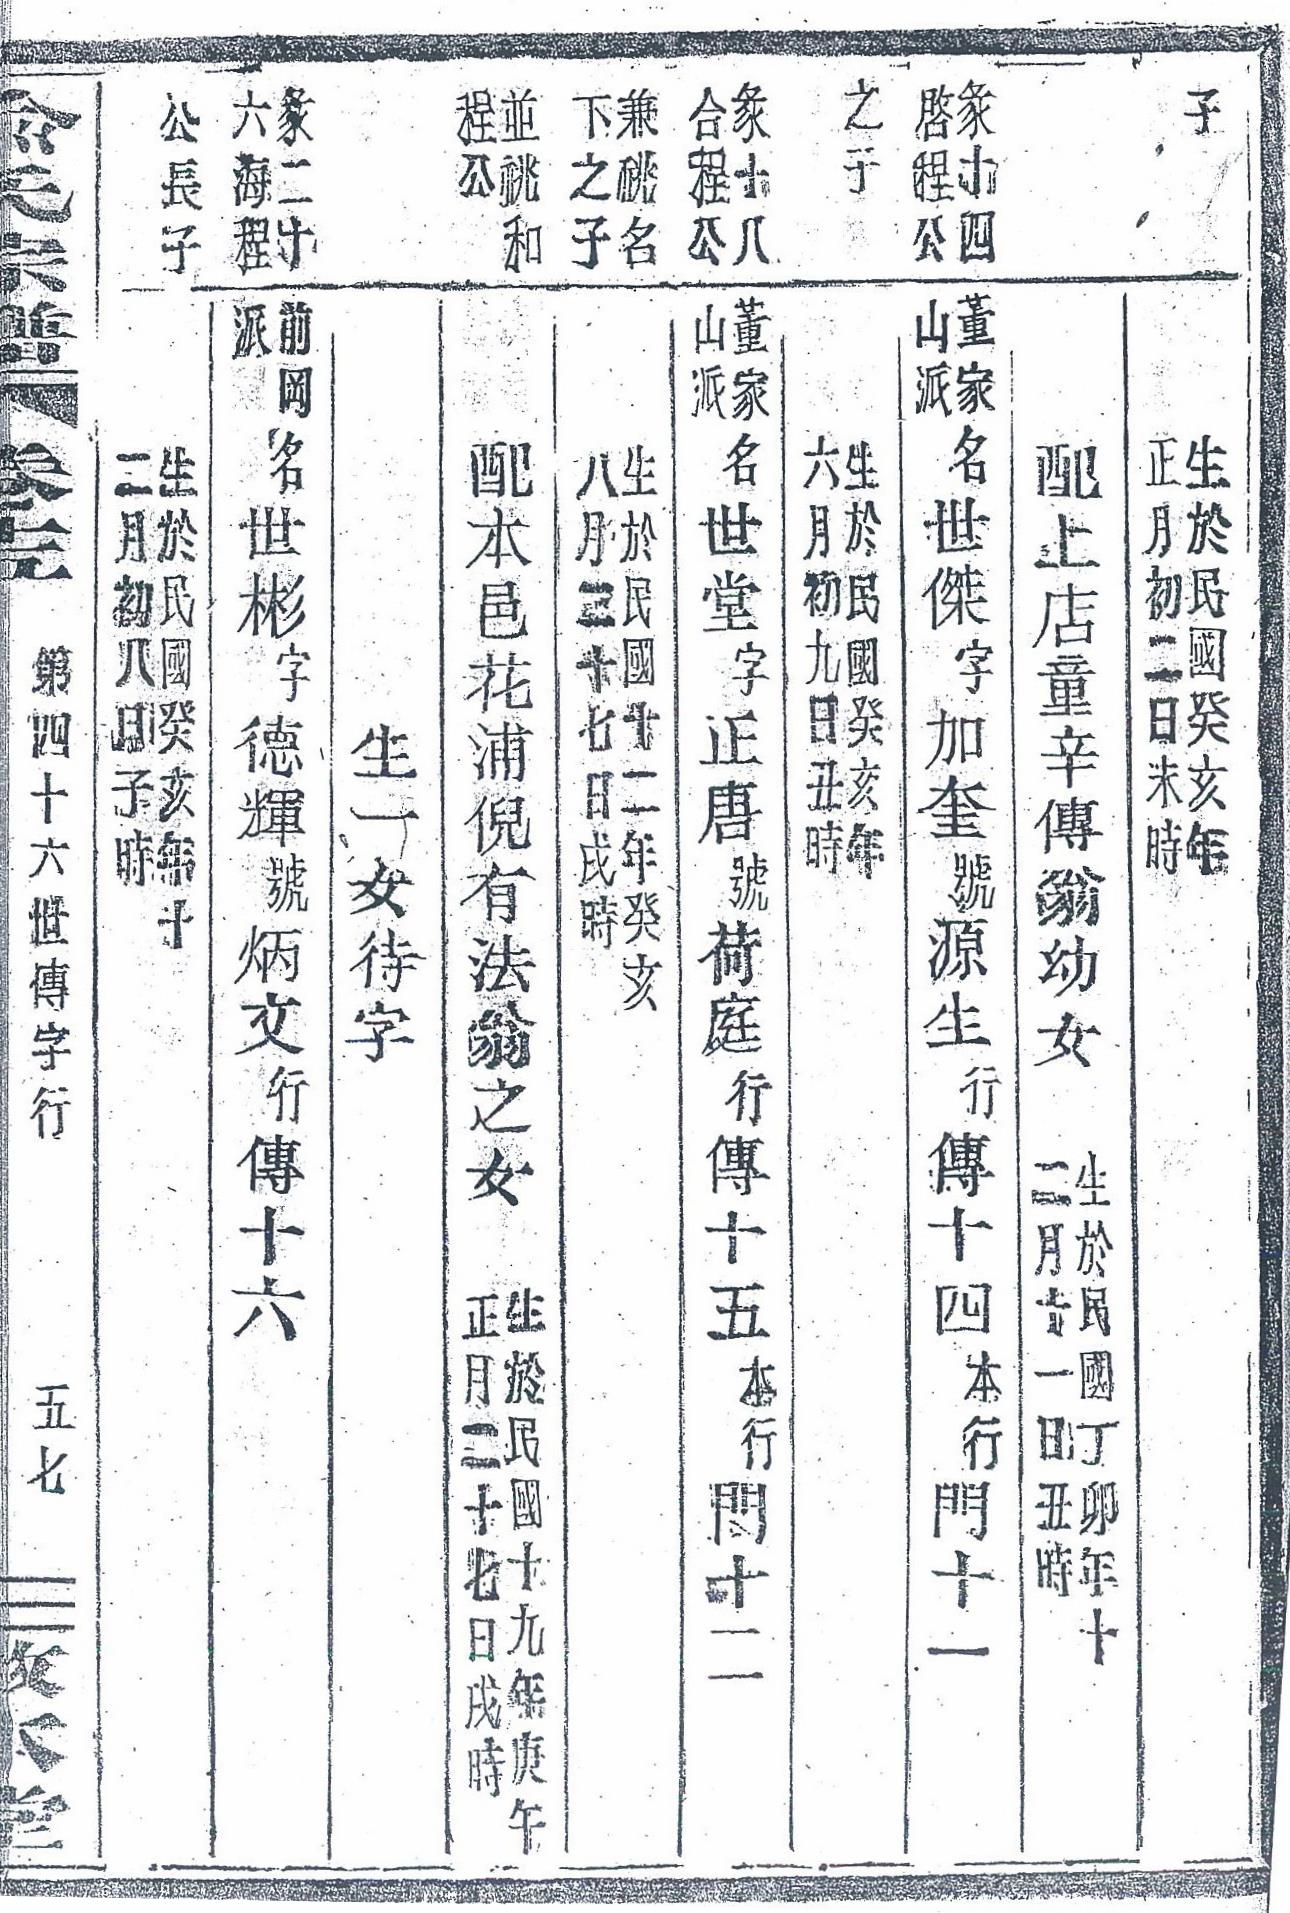 子
生於民國癸亥年
正月初二日未時
配上店童辛傳翁幼女
生於民國丁卯年十
二月十一日丑時
彖十四
啓程公
董家
山派
名世傑字加奎號源生行傳十四本行門十一
之子
生於民國癸亥年
六月初九日丑時
彖十八
合程公
董家
山派
名世堂字正唐號荷庭行傳十五本行門十二
兼祧名
下之子
生於民國十二年癸亥
八月二十七日戌時
並祧和
程公
配本邑花浦倪有法翁之女
生於民國十九年庚午
正月二十七日戌時
生一女待字
彖二十
六海程
前岡
派
名世彬字德輝號炳文行傳十六
公長子
生於民國癸亥年十
二月初八日子時
宗譜
卷元
第四十六世傳字行
五七
堂